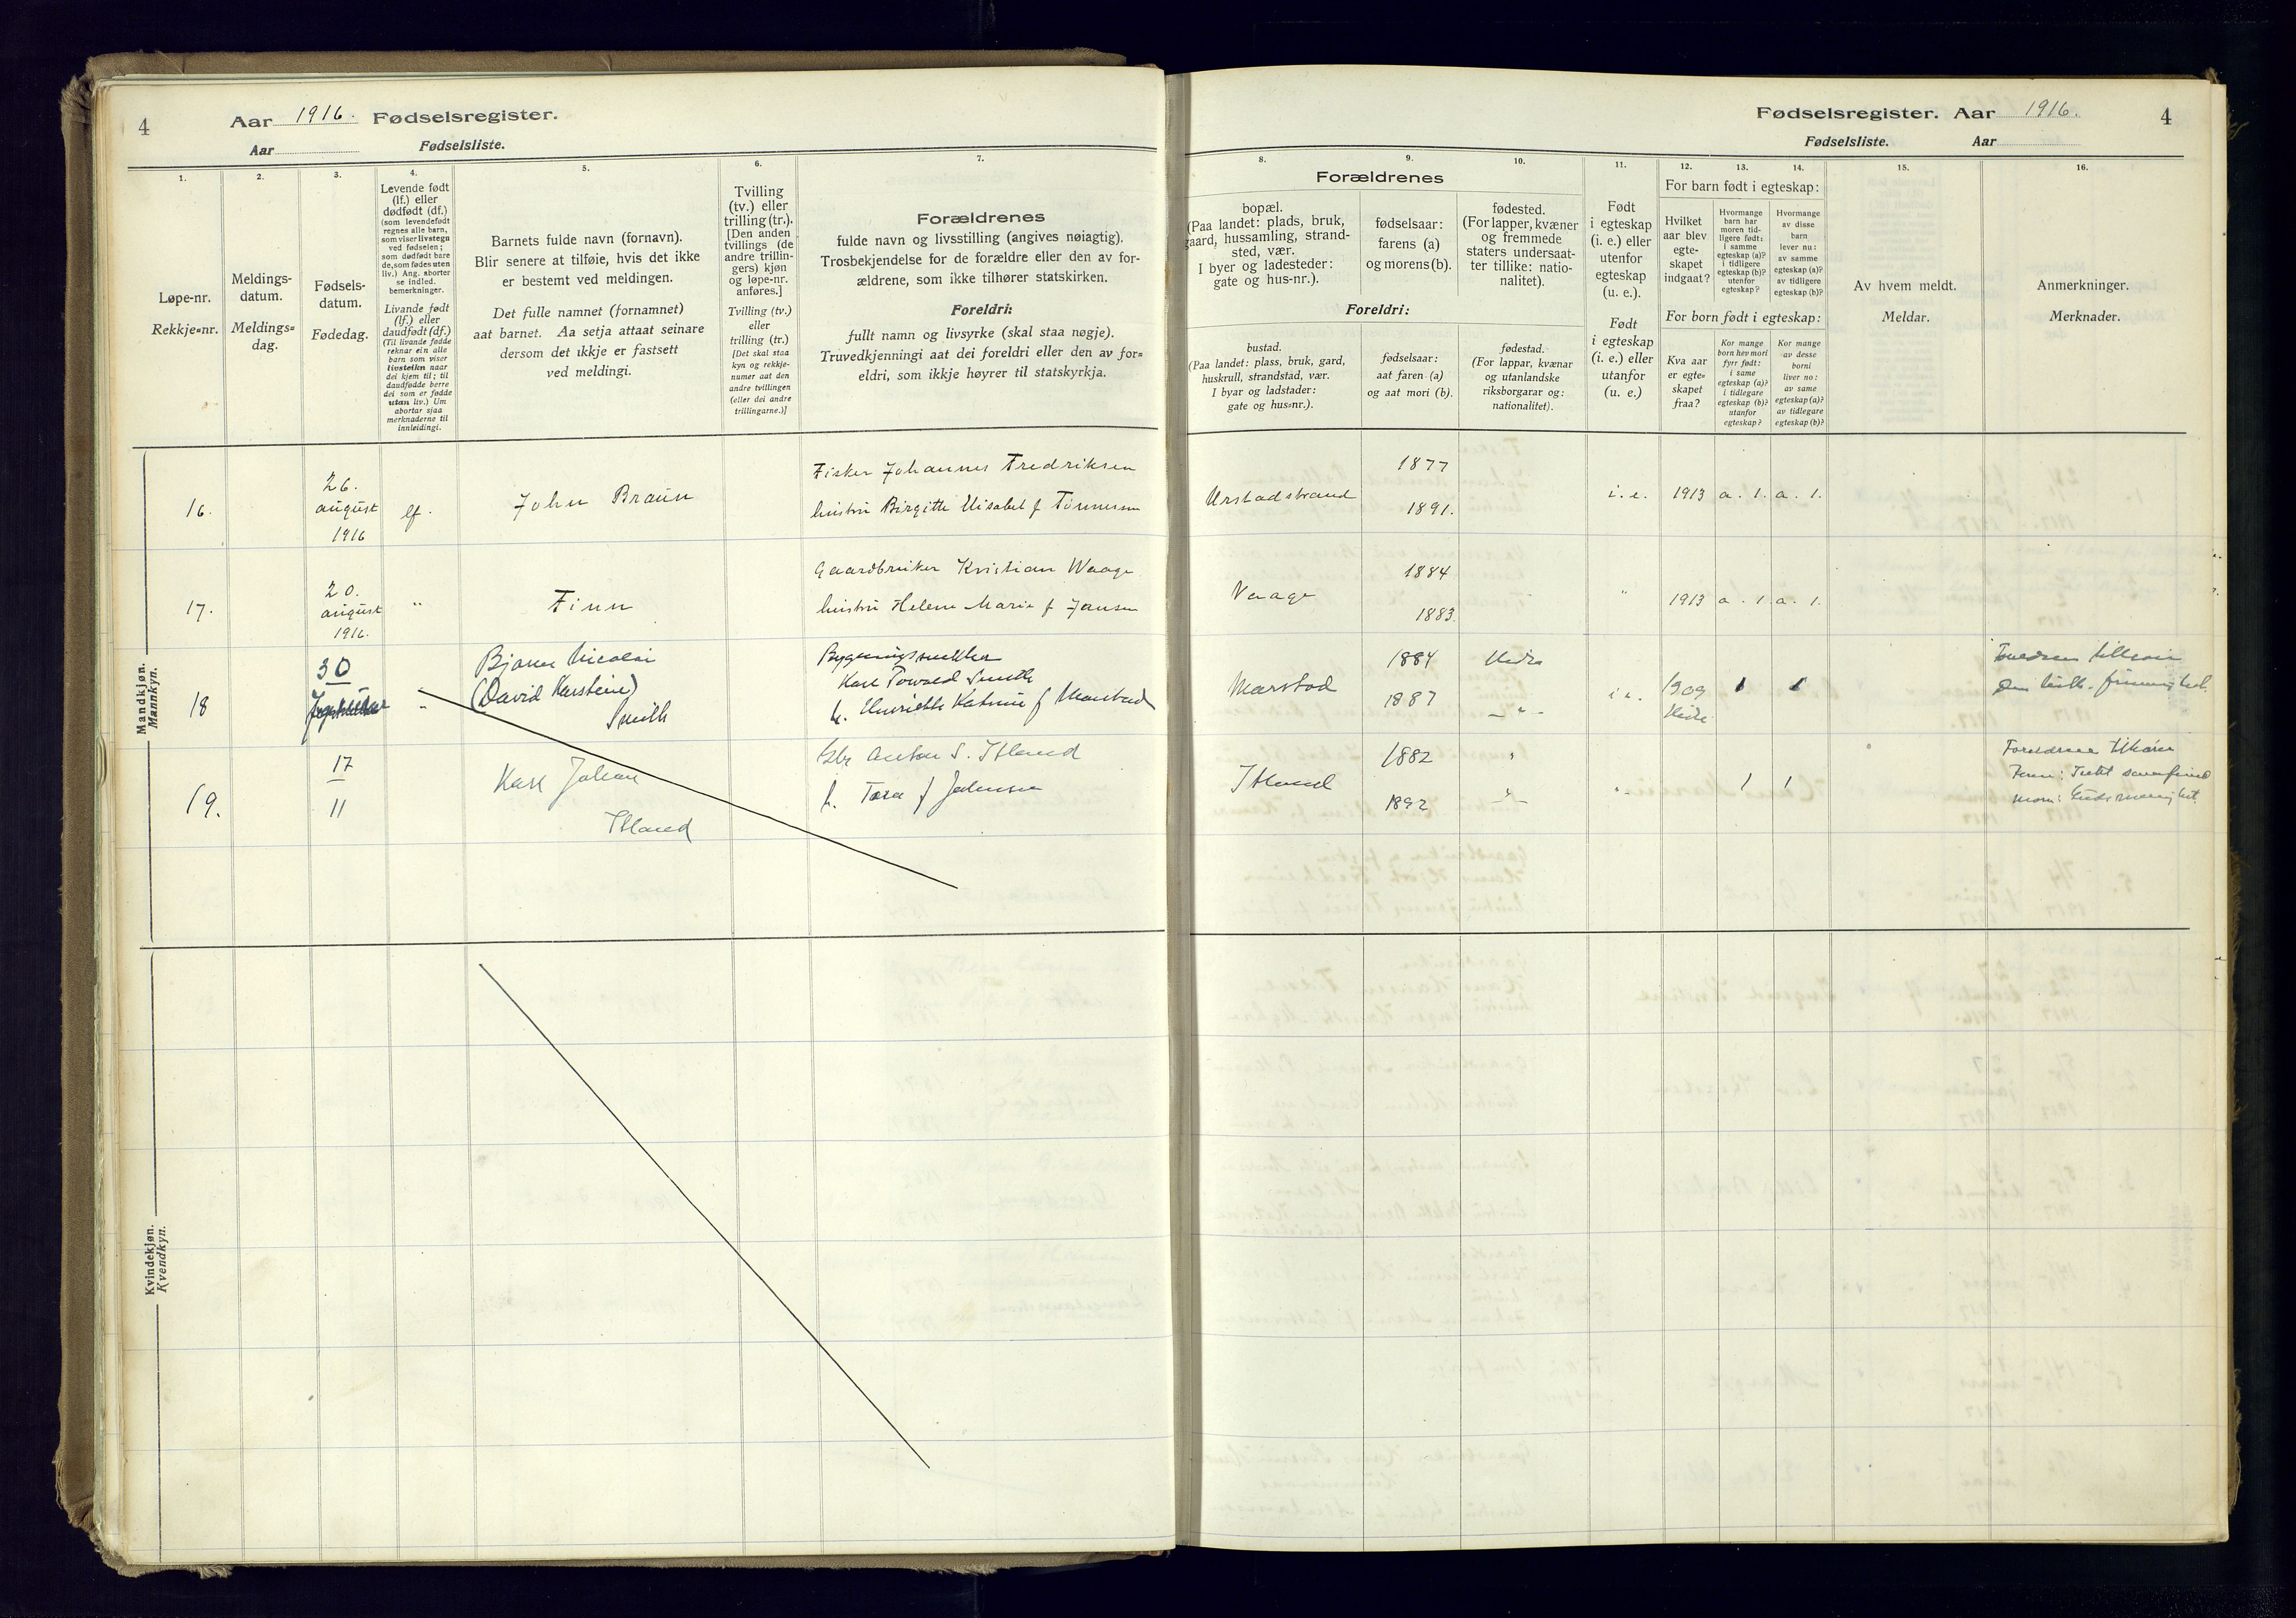 4
Aar 1916. Fødselsregister.
Aar Fødselsliste.
1.
2.
3.
4.
5.
6.
7.
Løpe-nr.
Rekkje=nr.
Meldings-
datum.
Meldings=
dag.
Fødsels-
datum.
Fødedag.
Levende født
(lf.) eller
dødfødt (df.)
(som levendefødt
regnes alle barn,
som viser livstegn
ved fødselen;
som dødfødt bare
de, som fødes uten
liv.) Ang. aborter
se indled.
bemerkninger.
Livande født
(lf.) eller
daudfødt (df.)
(Til livande fødde
reknar ein alle
barn som viser
livsteikn naar
dei kjem til; til
daudfødde berre
dei som er fødde
utan liv.) Um
abortar sjaa
merknaderne til
innleidingi.
Barnets fulde navn (fornavn).
Blir senere at tilføie, hvis det ikke
er bestemt ved meldingen.
Det fulle namnet (fornamnet)
aat barnet. Aa setja attaat seinare
dersom det ikkje er fastsett
ved meldingi.
Tvilling
(tv.) eller
trilling (tr.).
[Den anden
tvillings (de
andre trillin-
gers) kjøn
og løpe-nr.
anføres.]
Tvilling (tv.)
eller
trilling (tr.)
[Det skal staa
kyn og rekkje-
numer aat den
andre tvillingen
(eller dei andre
trillingarne.)]
Forældrenes
fulde navn og livsstilling (angives nøiagtig).
Trosbekjendelse for de forældre eller den av for-
ældrene, som ikke tilhører statskirken.
Foreldri:
fullt namn og livsyrke (skal staa nøgje).
Truvedkjenningi aat dei foreldri eller den av for=
eldri, som ikkje høyrer til statskyrkja.
Mandkjøn.
Mannkyn.
16.
26.
august
1916
lf.
John Braun
Fisker Johannes Fredriksen
hustru Birgitte Elisabet f Tønnesen
17.
20.
august
1916.
"
Finn
Gaardbruker Kristian Waage
hustru Helene Marie f Jansen
18
30
"
Bjarne Nicolai
(David Karsteine)
Smith
Karl Smith
h. Henriette f Marstad
19.
17
11
Karl Johan
Itland
Gbr Anton S. Itland
h. Tora f Johnsen
Kvindekjøn.
Kvendkyn.
Fødselsregister. Aar 1916.
4
Fødselsliste. Aar
8.
9.
10.
11.
12.
13.
14.
15.
16.
Forældrenes
bopæl.
(Paa landet: plads, bruk,
gaard, hussamling, strand-
sted, vær.
I byer og ladesteder:
gate og hus-nr.).
fødselsaar:
farens (a)
og morens (b).
fødested.
(For lapper, kvæner
og fremmede
staters undersaat-
ter tillike: natio-
nalitet).
Foreldri:
bustad.
(Paa landet: plass, bruk, gard,
huskrull, strandstad, vær.
I byar og ladstader:
gate og hus=nr.).
fødselsaar:
aat faren (a)
og aat mori (b).
fødestad.
(For lappar, kvænar
og utanlandske
riksborgarar og:
nationalitet).
Født
i egteskap
(i. e.) eller
utenfor
egteskap
(u. e.).
Født
i egteskap
(i. e.) eller
utanfor
(u. e.)
For barn født i egteskap:
Hvilket
aar blev
egte-
skapet
indgaat?
Hvormange
barn har
moren tid-
ligere født:
i samme
egteskap (a)?
i tidligere
egteskap (b)?
utenfor
egteskap?
Hvormange
av disse
barn
lever nu:
av samme
egteskap (a)?
av tidligere
egteskap (b)?
For born født i egteskap:
Kva aar
er egte=
skapet
fraa?
Kor mange
born hev mori
fyrr født:
i same
egteskap (a)?
i tidlegare
egteskap (b)?
utanfor
egteskap?
Kor mange
av desse
borni
liver no:
av same
egteskap (a)?
av tidlegare
egteskap (b)?
Av hvem meldt.
Meldar.
Anmerkninger.
Merknader.
Urstadstrand
1877
1891.
i. e. 1913 a. 1. a. 1.
Vaage
1884
1883.
" 1913 a. 1 a. 1.
Marstad
1884 Hidra
1887 - " -
i e. 1909 1 1
Itland
1882 "
1892 - " -
" 1 1